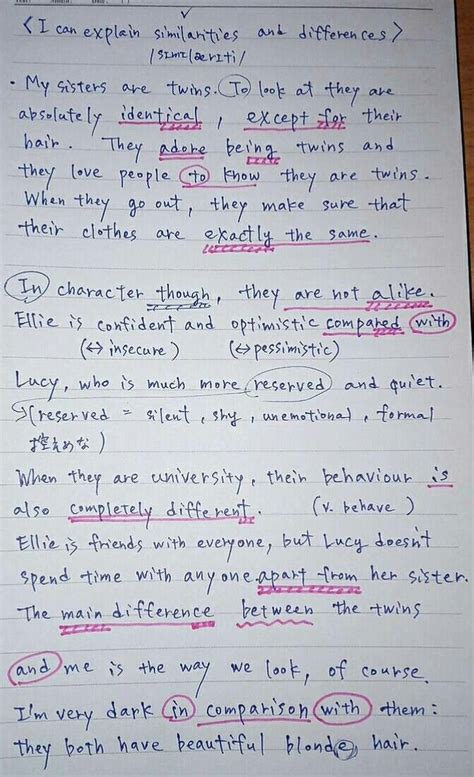 <I can explain similarities and differences>
/sɪmɪlærɪti/
· My sisters are twins. To look at they are
absolutely identical, except for their
hair. They adore being twins and
they love people to know they are twins.
When they go out, they make sure that
their clothes are exactly the same.
In character though, they are not alike.
Ellie is confident and optimistic compared with
(↔ insecure) (↔ pessimistic)
Lucy, who is much more reserved and quiet.
(reserved = silent, shy, unemotional, formal
控えめな)
When they are university, their behaviour is
also completely different. (v. behave)
Ellie is friends with everyone, but Lucy doesn't
spend time with anyone apart from her sister.
The main difference between the twins
and me is the way we look, of course.
I'm very dark in comparison with them:
they both have beautiful blonde hair.